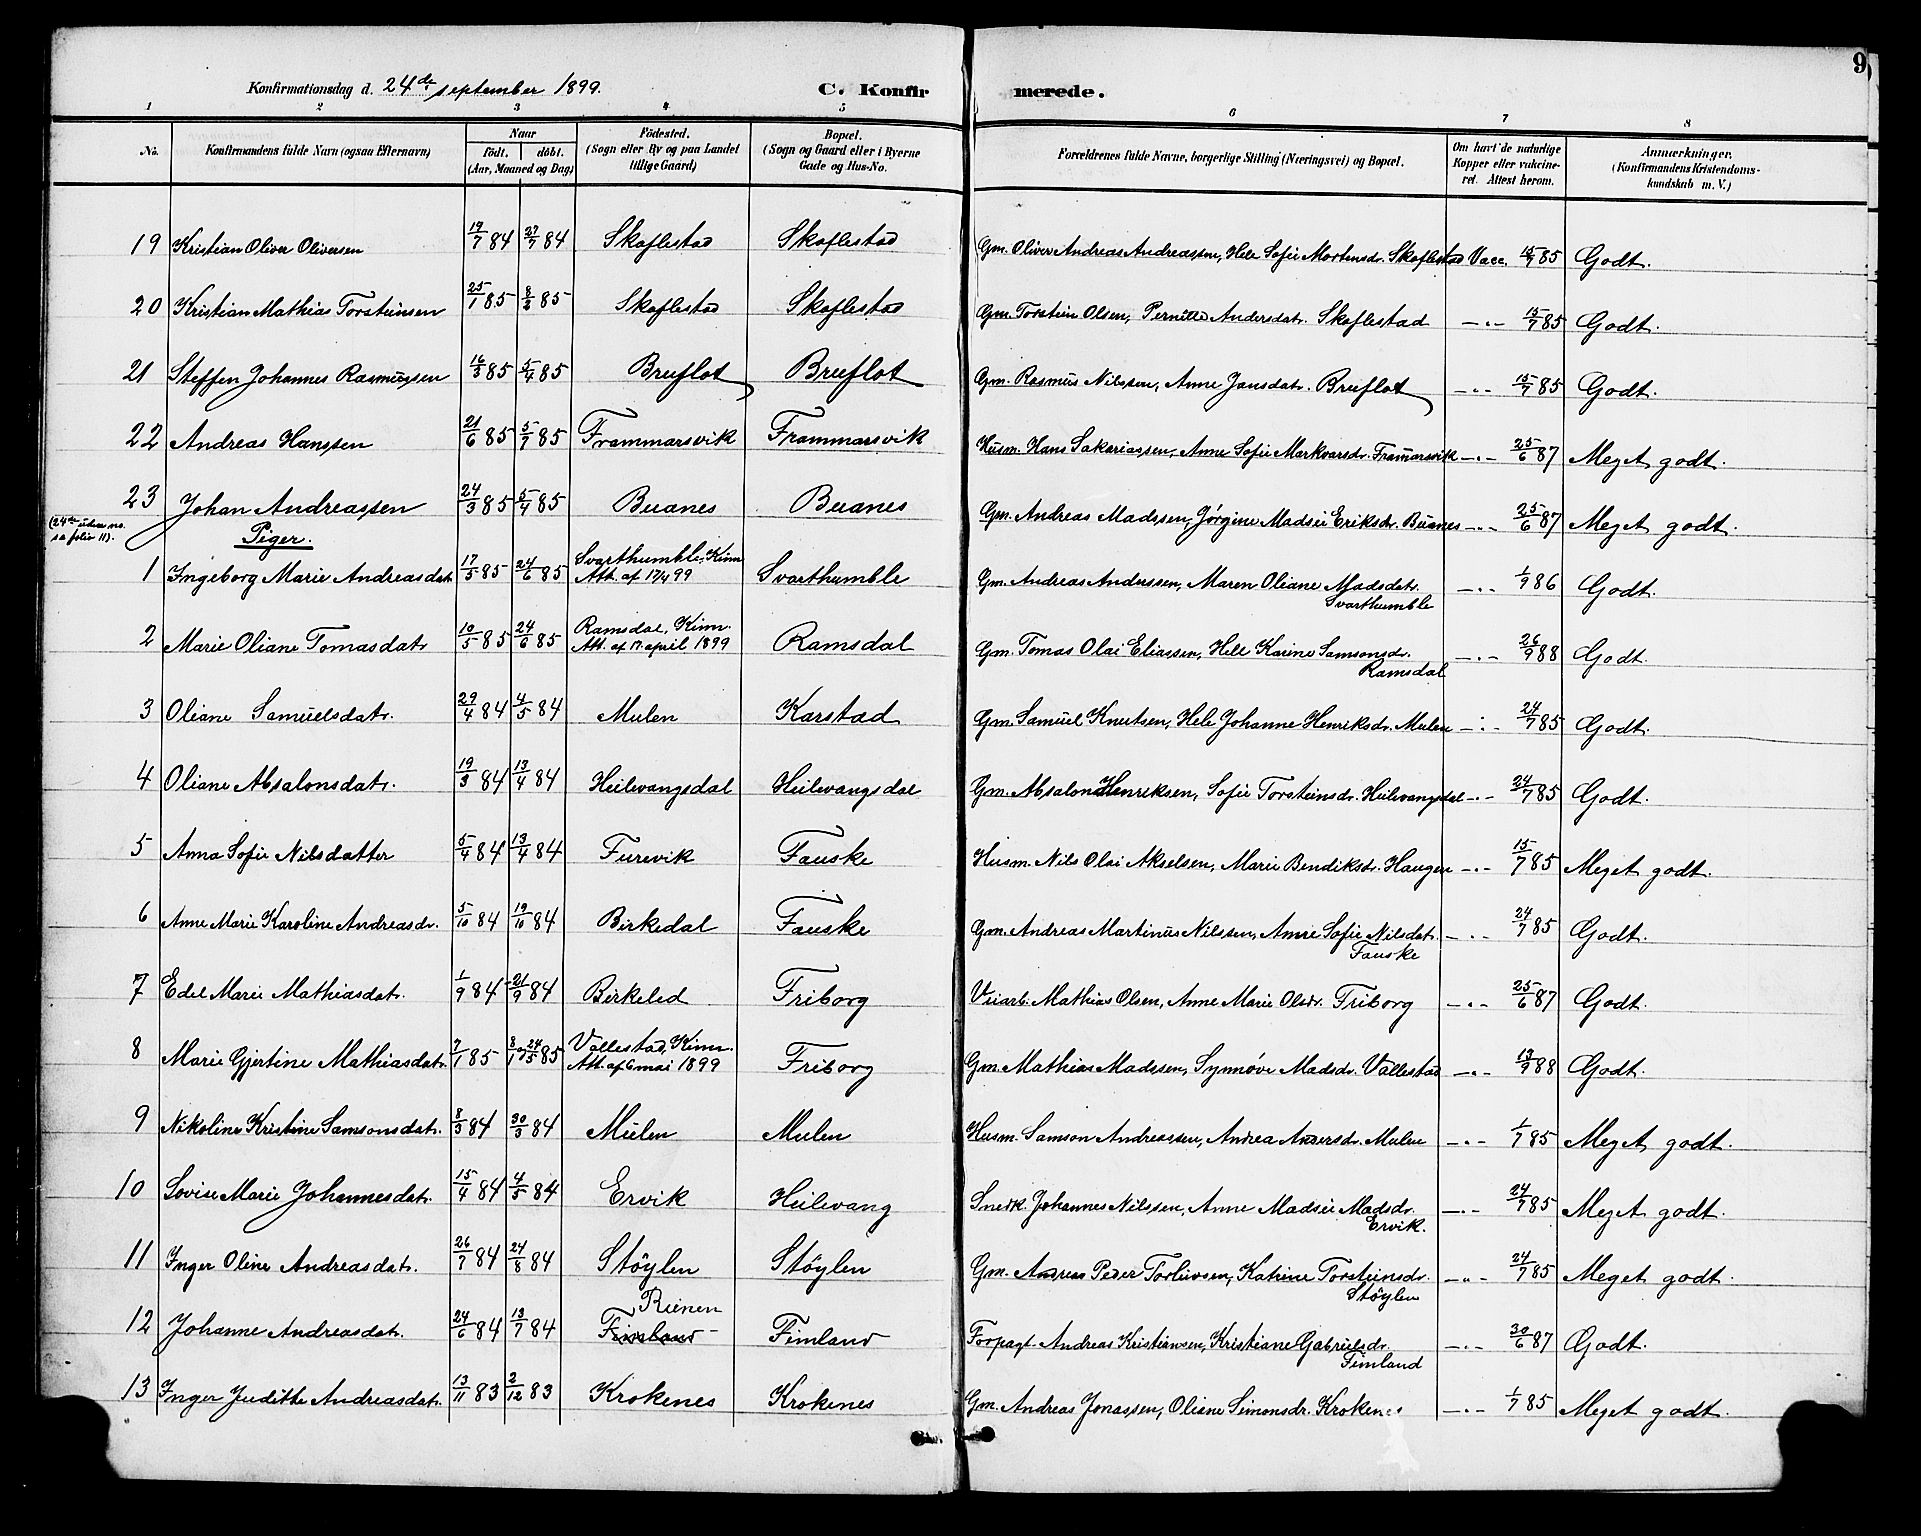 9
Konfirmationsdag d. 24de september 1899. C. Konfirmerede.
1 2 3 4 5 6 7 8
No. Konfirmandens fulde Navn (ogsaa Efternavn) Naar født. døbt. (Aar, Maaned og Dag) Födested. (Sogn eller By og paa Landet tillige Gaard) Bopæl. (Sogn og Gaard eller i Byerne Gade og Hus-No. Forældrenes fulde Navne, borgerlige Stilling (Næringsvei) og Bopæl. Om havt de naturlige Kopper eller vaccineret. Attest herom. Anmærkninger. (Konfirmandens Kristendomskundskab m. V.)
19 Kristian Oliver Oliversen 19/7 84 27/7 84 Skaflestad Skaflestad Gm. Oliver Andreas Andreassen, Hele Sofie Mortensdr. Skaflestad Vacc. 15/7 85 Godt.
20 Kristian Mathias Torsteinsen 25/1 85 8/3 85 Skaflestad Skaflestad Gm. Torstein Olsen, Pernille Andersdatr. Skaflestad -"- 15/7 85 Godt.
21 Steffen Johannes Rasmussen 16/3 85 5/4 85 Bruflot Bruflot Gm. Rasmus Nilssen, Anne Jansdatr. Bruflot -"- 15/7 85 Godt.
22 Andreas Hanssen 21/6 85 5/7 85 Frammarsvik Frammarsvik Husm. Hans Sakariassen, Anne Sofie Markvarsdr. Framarsvik -"- 25/6 87 Meget godt.
23 Johan Andreassen 24/3 85 5/4 85 Buanes Buanes Gm. Andreas Madssen, Jørgine Madsie Eriksdr. Buanes -"- 25/6 87 Meget godt.
(24de uden no. sa folio 11).
Piger.
1 Ingeborg Marie Andreasdatr. 17/5 85 24/6 85 Svarthumble, Kinn. Att. af 17/4 99 Svarthumble Gm. Andreas Anderssen, Maren Oliane Madsdatr. Svarthumble -"- 1/9 86 Godt.
2 Marie Oliane Tomasdatr. 10/5 85 24/6 85 Ramsdal, Kinn. Att. af 17. april 1899 Ramsdal Gm. Tomas Olai Eliassen, Hele Karine Samsonsdr. Ramsdal -"- 26/9 88 Godt.
3 Oliane Samuelsdatr. 29/4 84 4/5 84 Mulen Karstad Gm. Samuel Knutsen, Hele Johanne Henriksdr. Mulen -"- 24/7 85 Godt.
4 Oliane Absalonsdatr. 19/3 84 13/4 84 Heilevangsdal Heilevangsdal Gm. Absalon Henriksen, Sofie Torsteinsdr. Heilevangsdal -"- 24/7 85 Godt.
5 Anna Sofie Nilsdatter 5/4 84 13/4 84 Furevik Fauske Husm. Nils Olai Akselsen, Marie Bendiksdr. Haugen -"- 15/7 85 Meget godt.
6 Anne Marie Karoline Andreasdr. 5/10 84 19/10 84 Birkedal Fauske Gm. Andreas Martinus Nilssen, Anne Sofie Nilsdatr. Fauske -"- 24/7 85 Godt.
7 Edel Marie Mathiasdatr. 1/9 84 21/9 84 Birkeled Friborg Veiarb. Mathias Olsen, Anne Marie Olsdr. Friborg -"- 25/6 87 Godt.
8 Marie Gjertine Mathiasdatr. 7/1 85 8/1 24/5 85 Vallestad, Kinn. Att. af 6 mai 1899 Friborg Gm. Mathias Madssen, Synnøve Madsdr. Vallestad -"- 13/9 88 Godt.
9 Nikoline Kristine Samsonsdatr. 8/3 84 30/3 84 Mulen Mulen Husm. Samson Andreassen, Andrea Andersdr. Mulen -"- 1/7 85 Meget godt.
10 Lovise Marie Johannesdatr. 15/4 84 4/5 84 Ervik Heilevang Snedk. Johannes Nilssen, Anne Madsie Madsdr. Ervik. -"- 24/7 85 Meget godt.
11 Inger Oline Andreasdatr. 26/7 84 24/8 84 Støylen Støylen Gm. Andreas Peder Torleivsen, Katrine Torsteinsdr. Støylen -"- 24/7 85 Meget godt.
12 Johanne Andreasdatr. 24/6 84 13/7 84 Rienen Fimland Fimland Forpagt. Andreas Kristiansen, Kristiane Gabrielsdr. Fimland -"- 30/6 87 Godt.
13 Inger Judithe Andreasdatr. 13/11 83 2/12 83 Krokenes Krokenes Gm. Andreas Jonassen, Oliane Simonsdr. Krokenes -"- 1/7 85 Meget godt.